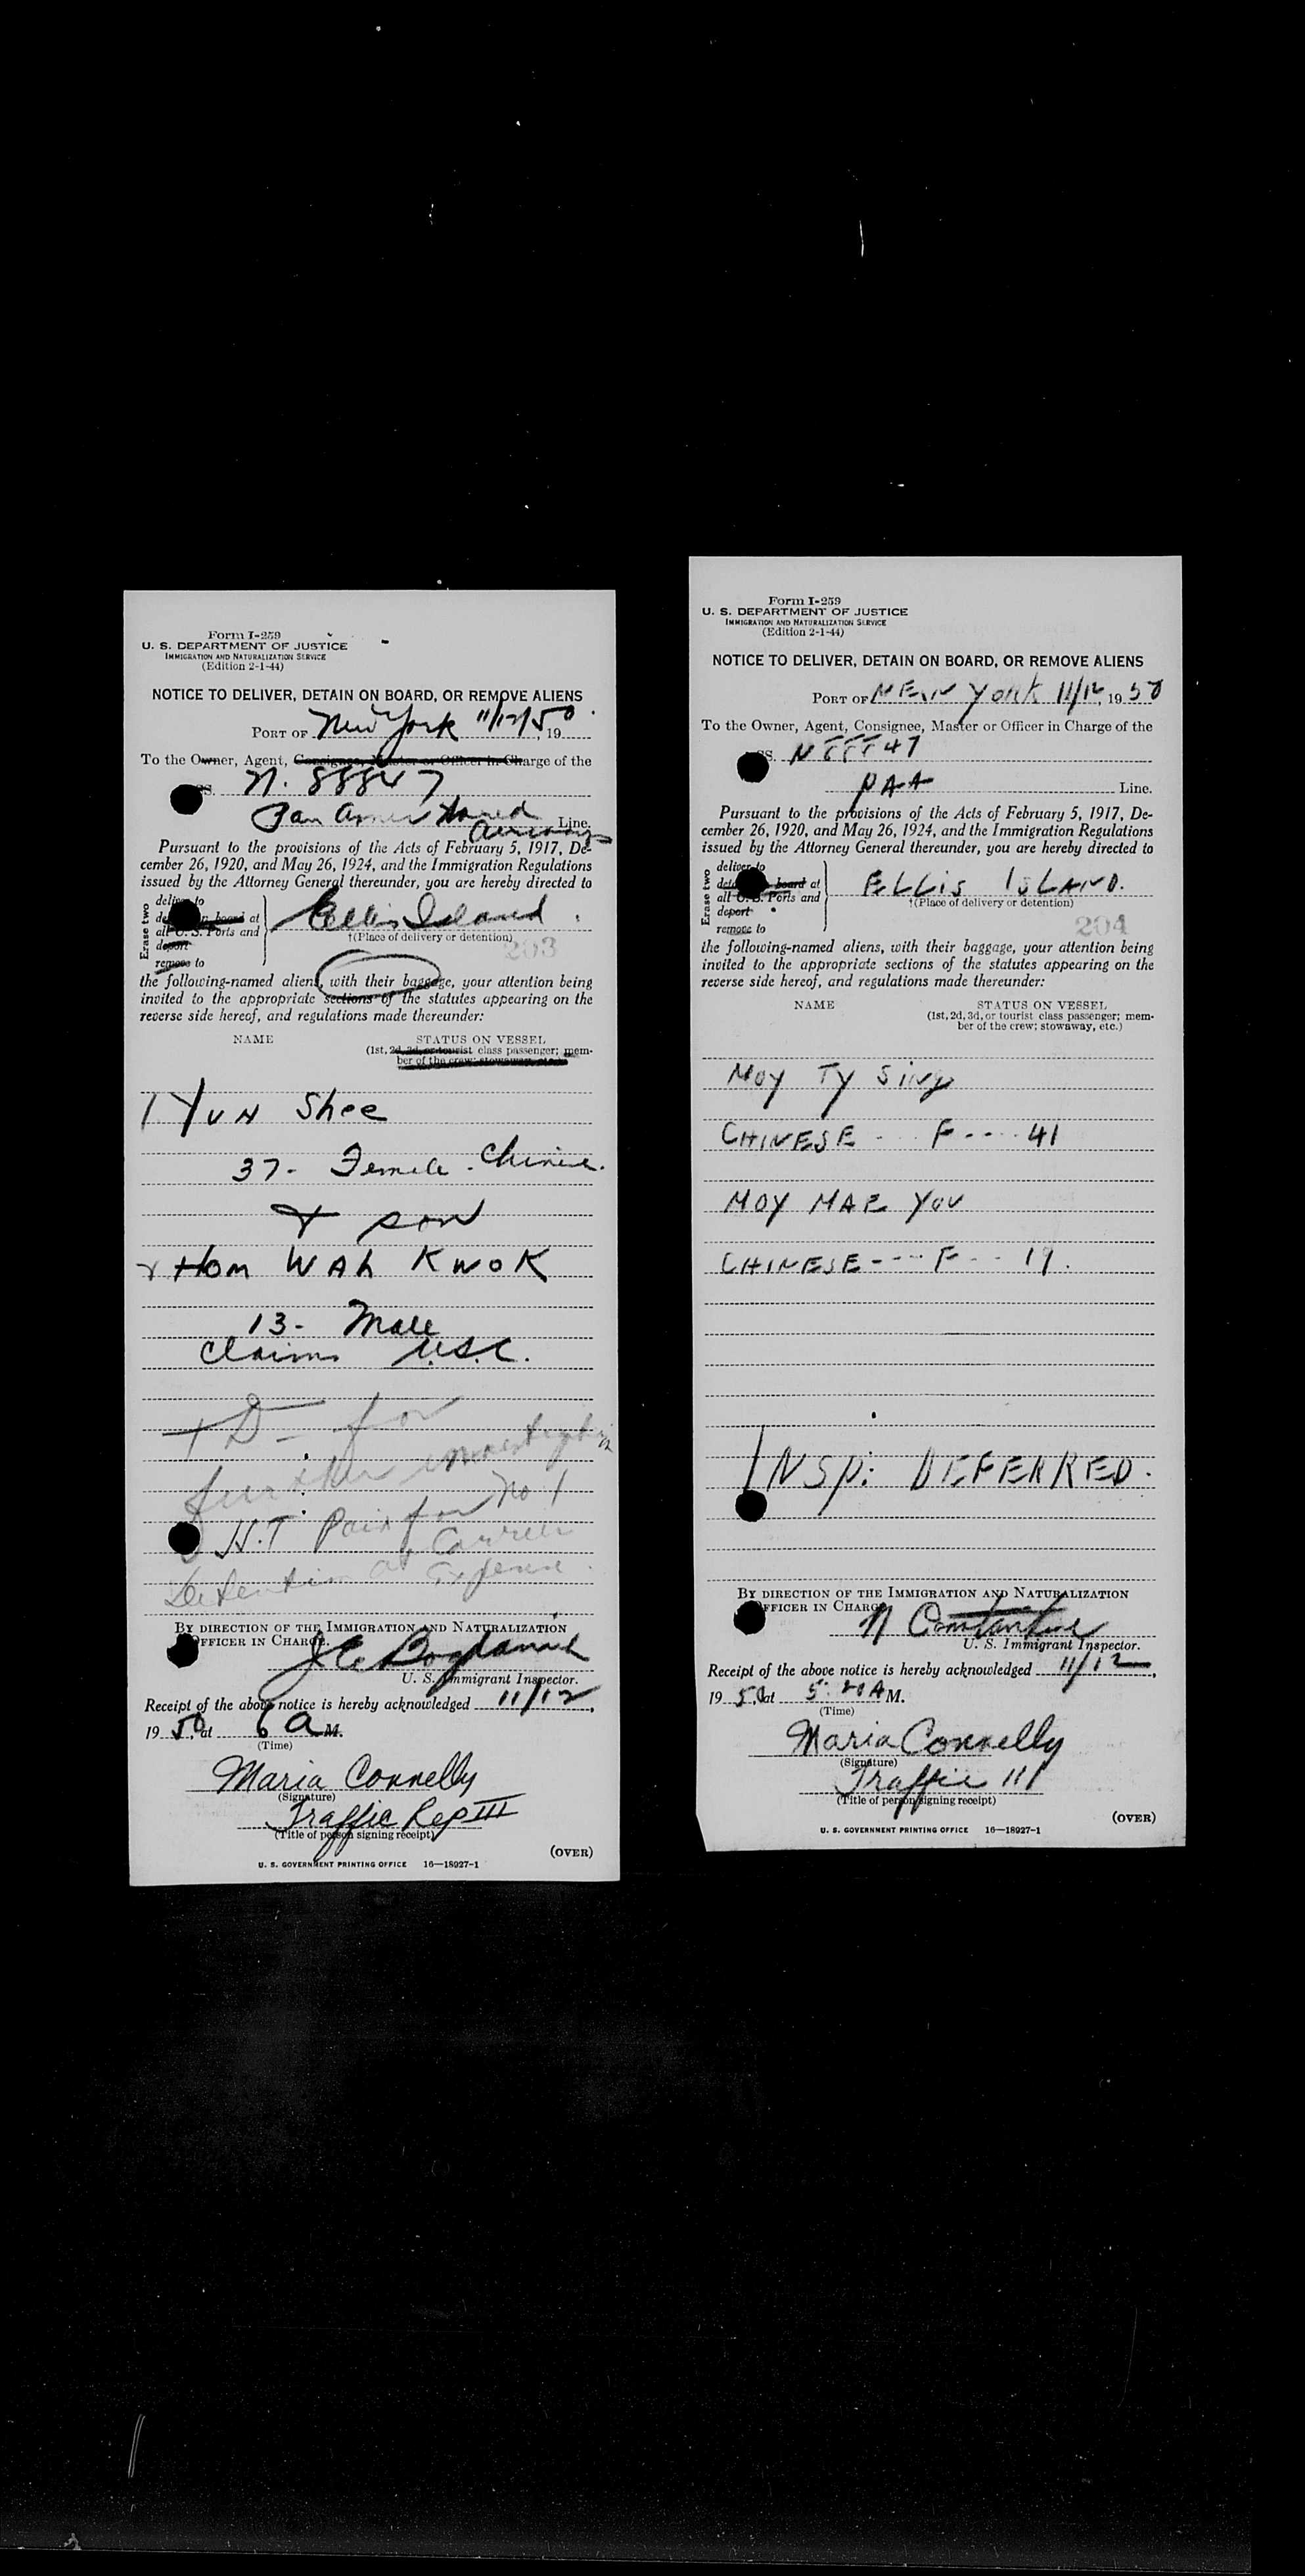 Form I-259
U. S. DEPARTMENT OF JUSTICE
IMMIGRATION AND NATURALIZATION SERVICE
(Edition 2-1-44)
NOTICE TO DELIVER, DETAIN ON BOARD, OR REMOVE ALIENS
PORT OF New York 11/12/50, 19
To the Owner, Agent, Consignee, Master or Officer in Charge of the
SS. N. 88847
Pan Amer World Airways Line.
Pursuant to the provisions of the Acts of February 5, 1917, De-
cember 26, 1920, and May 26, 1924, and the Immigration Regulations
issued by the Attorney General thereunder, you are hereby directed to
Erase two
deliver to
board at
all U. S. Ports and
deport
remove to
Ellis Island
†(Place of delivery or detention)
203
the following-named aliens, with their baggage, your attention being
invited to the appropriate sections of the statutes appearing on the
reverse side hereof, and regulations made thereunder:
NAME
STATUS ON VESSEL
(1st, 2d, 3d, or tourist class passenger; mem-
ber of the crew; stowaway, etc.)
1 Yun Shee
37 - Female - Chinese.
& son
Hom WAh KwoK
13 - Male
Claims U.S.C.
T D - for
further investigation
H.T Paid for No 1
Detention at Carrier
Expense
BY DIRECTION OF THE IMMIGRATION AND NATURALIZATION
OFFICER IN CHARGE.
U. S. Immigrant Inspector.
Receipt of the above notice is hereby acknowledged 11/12,
19 50, at 6 A M.
(Time)
Maria Connelly
(Signature)
Traffic Rep III
(Title of person signing receipt)
(OVER)
U. S. GOVERNMENT PRINTING OFFICE 16—18927-1
Form I-259
U. S. DEPARTMENT OF JUSTICE
IMMIGRATION AND NATURALIZATION SERVICE
(Edition 2-1-44)
NOTICE TO DELIVER, DETAIN ON BOARD, OR REMOVE ALIENS
PORT OF NEW York 11/12, 19 50
To the Owner, Agent, Consignee, Master or Officer in Charge of the
SS. N88847
PAA Line.
Pursuant to the provisions of the Acts of February 5, 1917, De-
cember 26, 1920, and May 26, 1924, and the Immigration Regulations
issued by the Attorney General thereunder, you are hereby directed to
Erase two
deliver to
board at
all U. S. Ports and
deport
remove to
ELLis ISLAND.
†(Place of delivery or detention)
204
the following-named aliens, with their baggage, your attention being
invited to the appropriate sections of the statutes appearing on the
reverse side hereof, and regulations made thereunder:
NAME
STATUS ON VESSEL
(1st, 2d, 3d, or tourist class passenger; mem-
ber of the crew; stowaway, etc.)
MOY TY SiNg
CHINESE - - - F - - - - 41
MOY MAE YOU
CHINESE - - - - F - - 19.
INSP: DEFERRED.
BY DIRECTION OF THE IMMIGRATION AND NATURALIZATION
OFFICER IN CHARGE
U. S. Immigrant Inspector.
Receipt of the above notice is hereby acknowledged 11/12,
19 50, at 5:20 A M.
(Time)
Maria Connelly
(Signature)
Traffic III
(Title of person signing receipt)
(OVER)
U. S. GOVERNMENT PRINTING OFFICE 16—18927-1